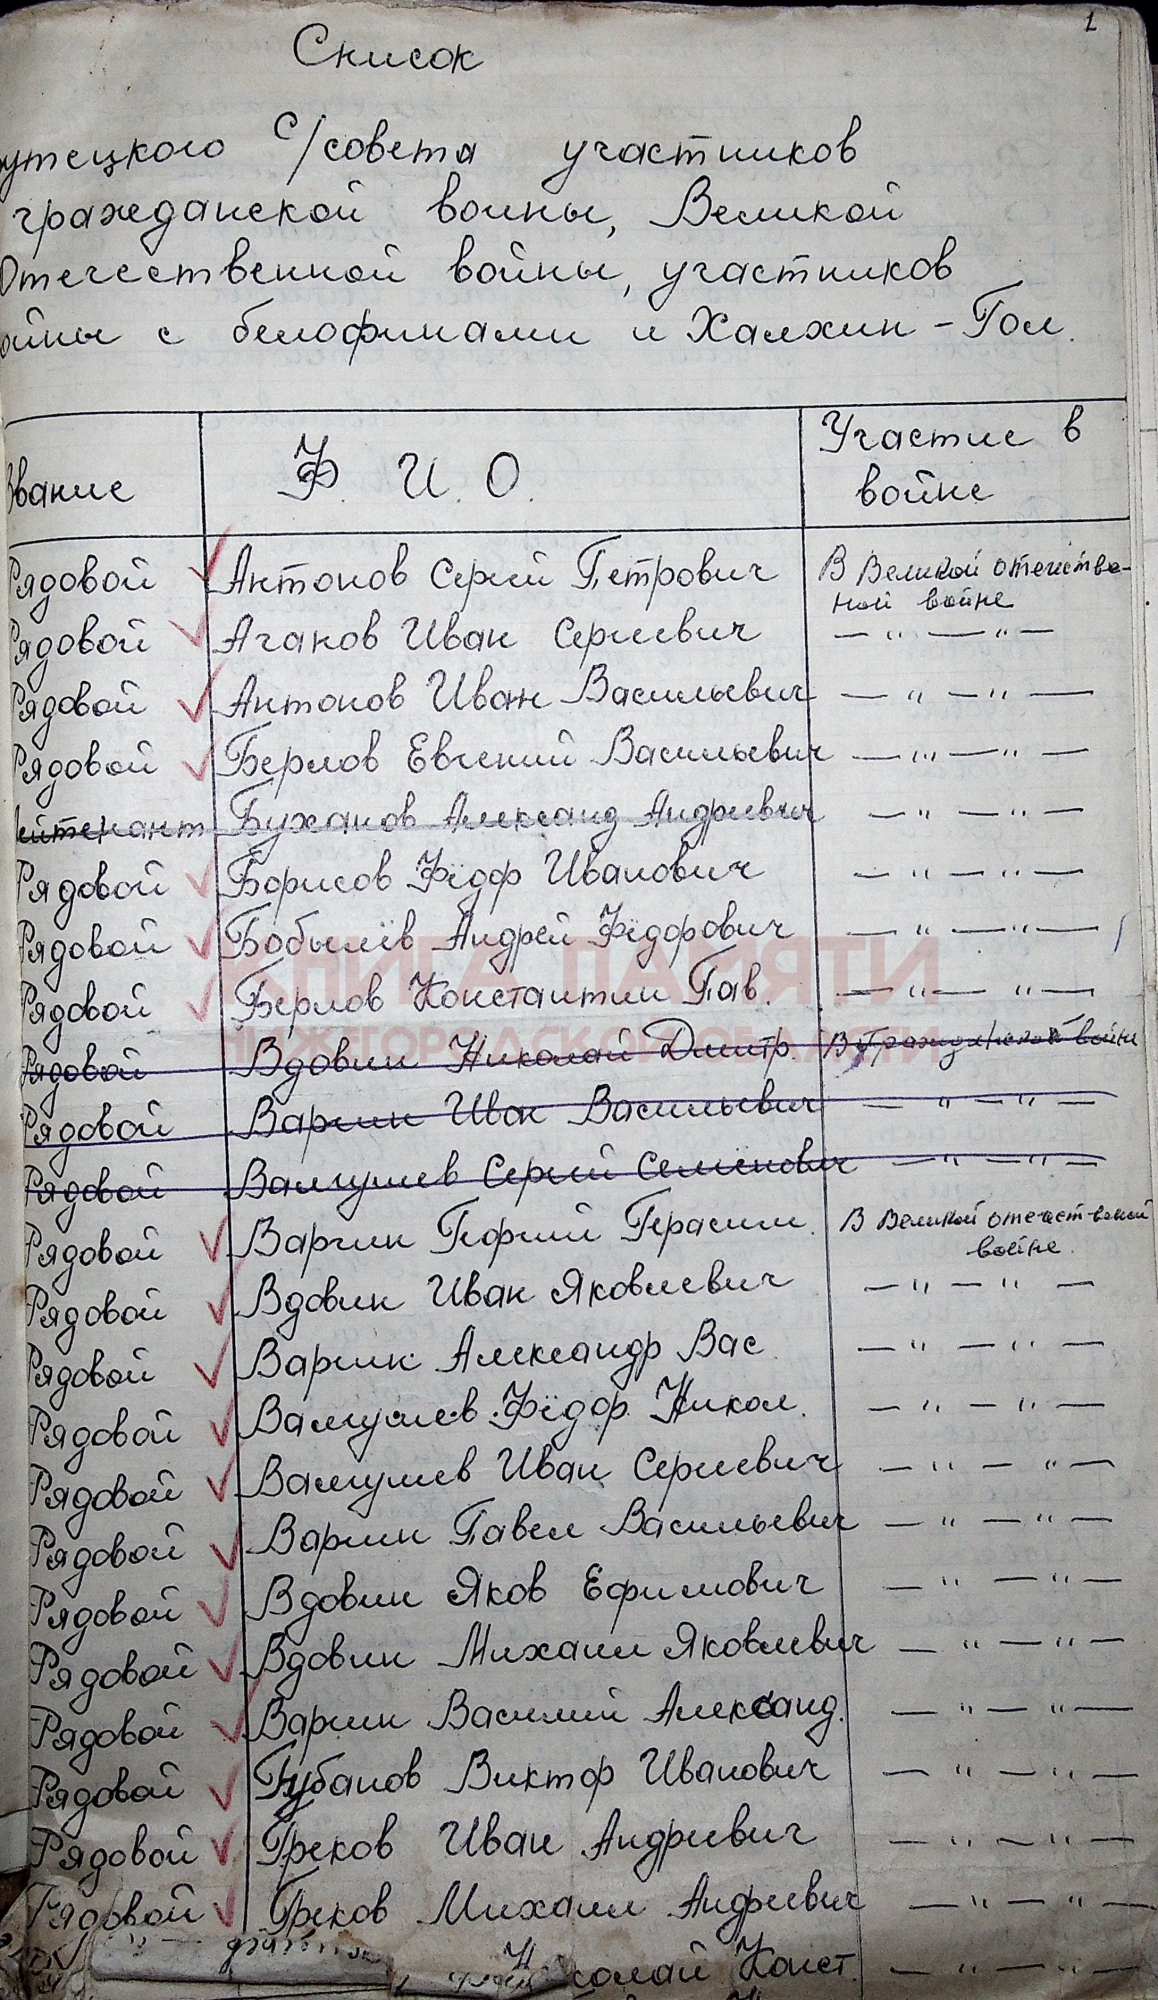 1
Список
утецкого с/совета участников
гражданской войны, Великой
Отечественной войны, участников
ойны с белофинами и Халхин-Гол.
Звание Ф. И. О. Участие в
войне
Рядовой Антонов Сергей Петрович В Великой отечестве-
ной войне
Рядовой Агаков Иван Сергеевич — " — " —
Рядовой Антонов Иван Васильевич — " — " —
Рядовой Берлов Евгений Васильевич — " — " —
ейтенант Буханов Александ Андреевич — " — " —
Рядовой Борисов Фёдор Иванович — " — " —
Рядовой Бобылёв Андрей Фёдорович — " — " —
Рядовой Берлов Константин Пав. — " — " —
КНИГА ПАМЯТИ
НИЖЕГОРОДСКОЙ ОБЛАСТИ
Рядовой Вдовин Николай Дмитр. В Гражданской войне
Рядовой Варгин Иван Васильевич — " — " —
Рядовой Валгушев Сергей Семенович — " — " —
Рядовой Варгин Георгий Герасим. В Великой отечест-веной
войне.
Рядовой Вдовин Иван Яковлевич — " — " —
Рядовой Варгин Александр Вас — " — " —
Рядовой Валгушев Фёдор Никол. — " — " —
Рядовой Валгушев Иван Сергеевич — " — " —
Рядовой Варгин Павел Васильевич — " — " —
Рядовой Вдовин Яков Ефимович — " — " —
Рядовой Вдовин Михаил Яковлевич — " — " —
Рядовой Варгин Василий Александ. — " — " —
Рядовой Губанов Виктор Иванович — " — " —
Рядовой Греков Иван Андреевич — " — " —
Рядовой Греков Михаил Андреевич — " — " —
колай Конст. — " — " —